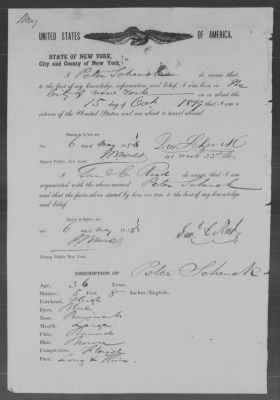 May
UNITED STATES OF AMERICA.
STATE OF NEW YORK,
City and County of New York,
I Peter Schanck do swear that
to the best of my knowledge, information, and belief, I was born in the
City of New York on or about the
15 day of Oct 18 that I am a
citizen of the United States, and am about to travel abroad
Sworn to before me
6 May 185
Notary Public, New York.
I do swear that I am
acquainted with the above named Peter Schanck
and that the facts above stated by him are true to the best of my knowledge
and belief.
Sworn to before me
6 May 185
Notary Public New York.
DESCRIPTION OF Peter Schanck
Age, 36 Years.
Stature, 5 Feet 8 Inches (English).
Forehead, High
Eyes, Blue
Nose, Prominent
Mouth, Large
Chin, Round
Hair, Brown
Complexion, Florid
Face, Long & Thin